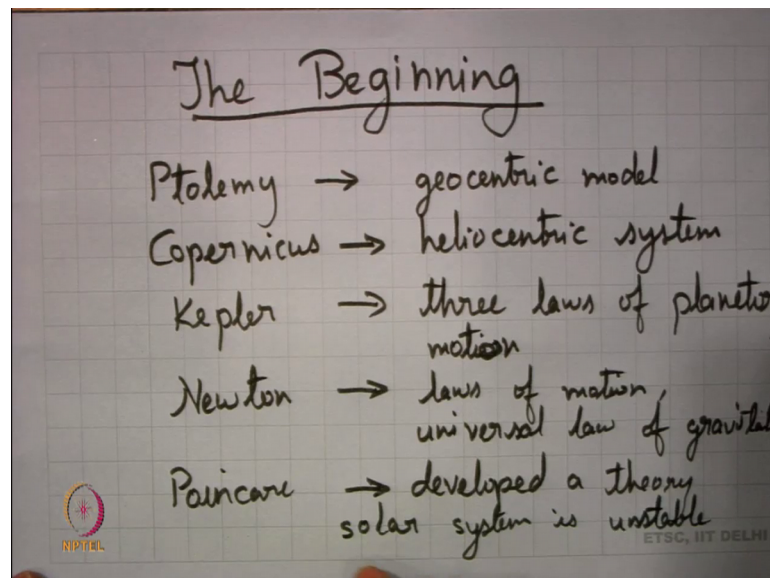 The Beginning
Ptolemy → geocentric model
Copernicus → heliocentric system
Kepler → three laws of planeta
motion
Newton → laws of motion,
universal law of gravitat
Poincare → developed a theory
solar system is unstable
NPTEL
ETSC, IIT DELHI